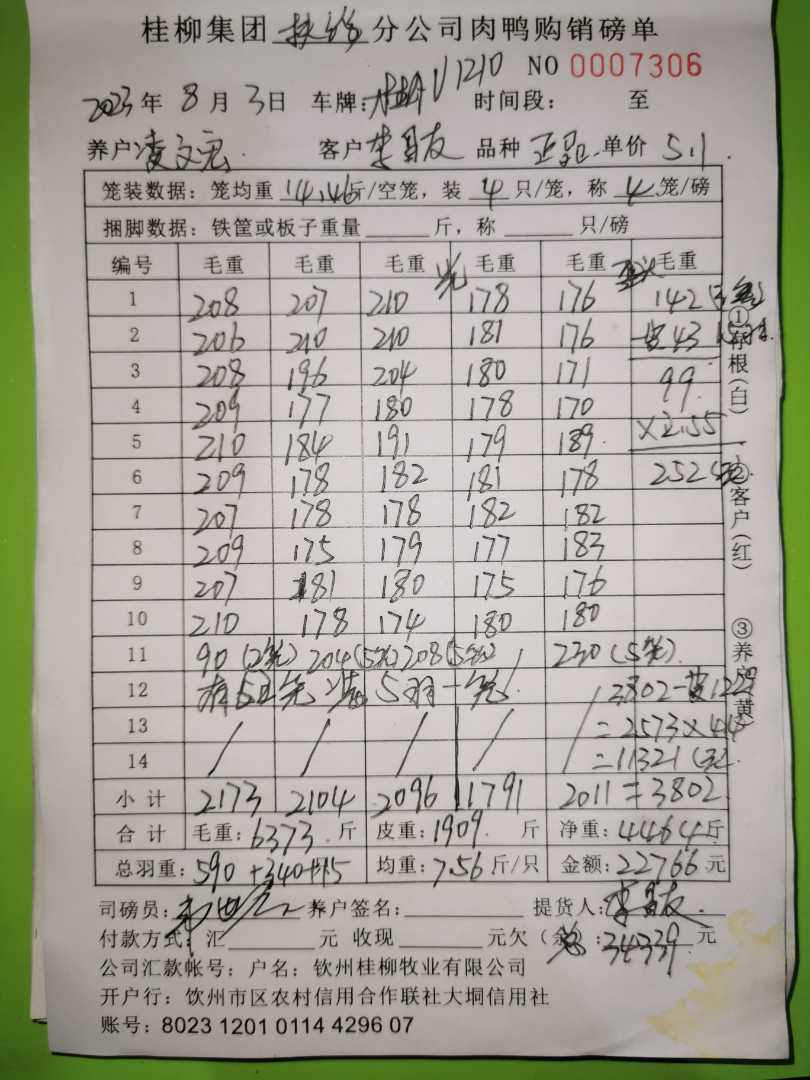 桂柳集团 分公司肉鸭购销磅单
NO 0007306
2023年 8月 3日 车牌: 1210 时间段: 至
养户 凌文宏 客户 李昌友 品种 正品 单价 5.1
笼装数据: 笼均重 14.46斤/空笼, 装 4 只/笼, 称 4 笼/磅
捆脚数据: 铁筐或板子重量 斤, 称 只/磅
编号 毛重 毛重 毛重 毛重 毛重 毛重
1 208 207 210 178 176 142
2 206 210 210 181 176 43
3 208 196 204 180 171 99
4 209 177 180 178 170
5 210 184 191 179 189 ×2.55
6 209 178 182 181 178 252
7 207 178 178 182 182
8 209 175 179 177 183
9 207 181 180 175 176
10 210 178 174 180 180
11 90(2笼) 204(5笼) 208(5笼) / 230(5笼)
12 5羽一笼 3802-皮1229
13 / / / / / =2573×4.4
14 =11321
小计 2173 2104 2096 1791 2011=3802
合计 毛重: 6373斤 皮重: 1909斤 净重: 4464斤
总羽重: 590+340+15 均重: 7.56斤/只 金额: 22766元
①存根(白)
②客户(红)
③养户(黄)
司磅员: 养户签名: 提货人: 李昌友
付款方式: 汇 元 收现 元欠(余) 总: 34339元
公司汇款帐号: 户名: 钦州桂柳牧业有限公司
开户行: 钦州市区农村信用合作联社大垌信用社
账号: 8023 1201 0114 4296 07